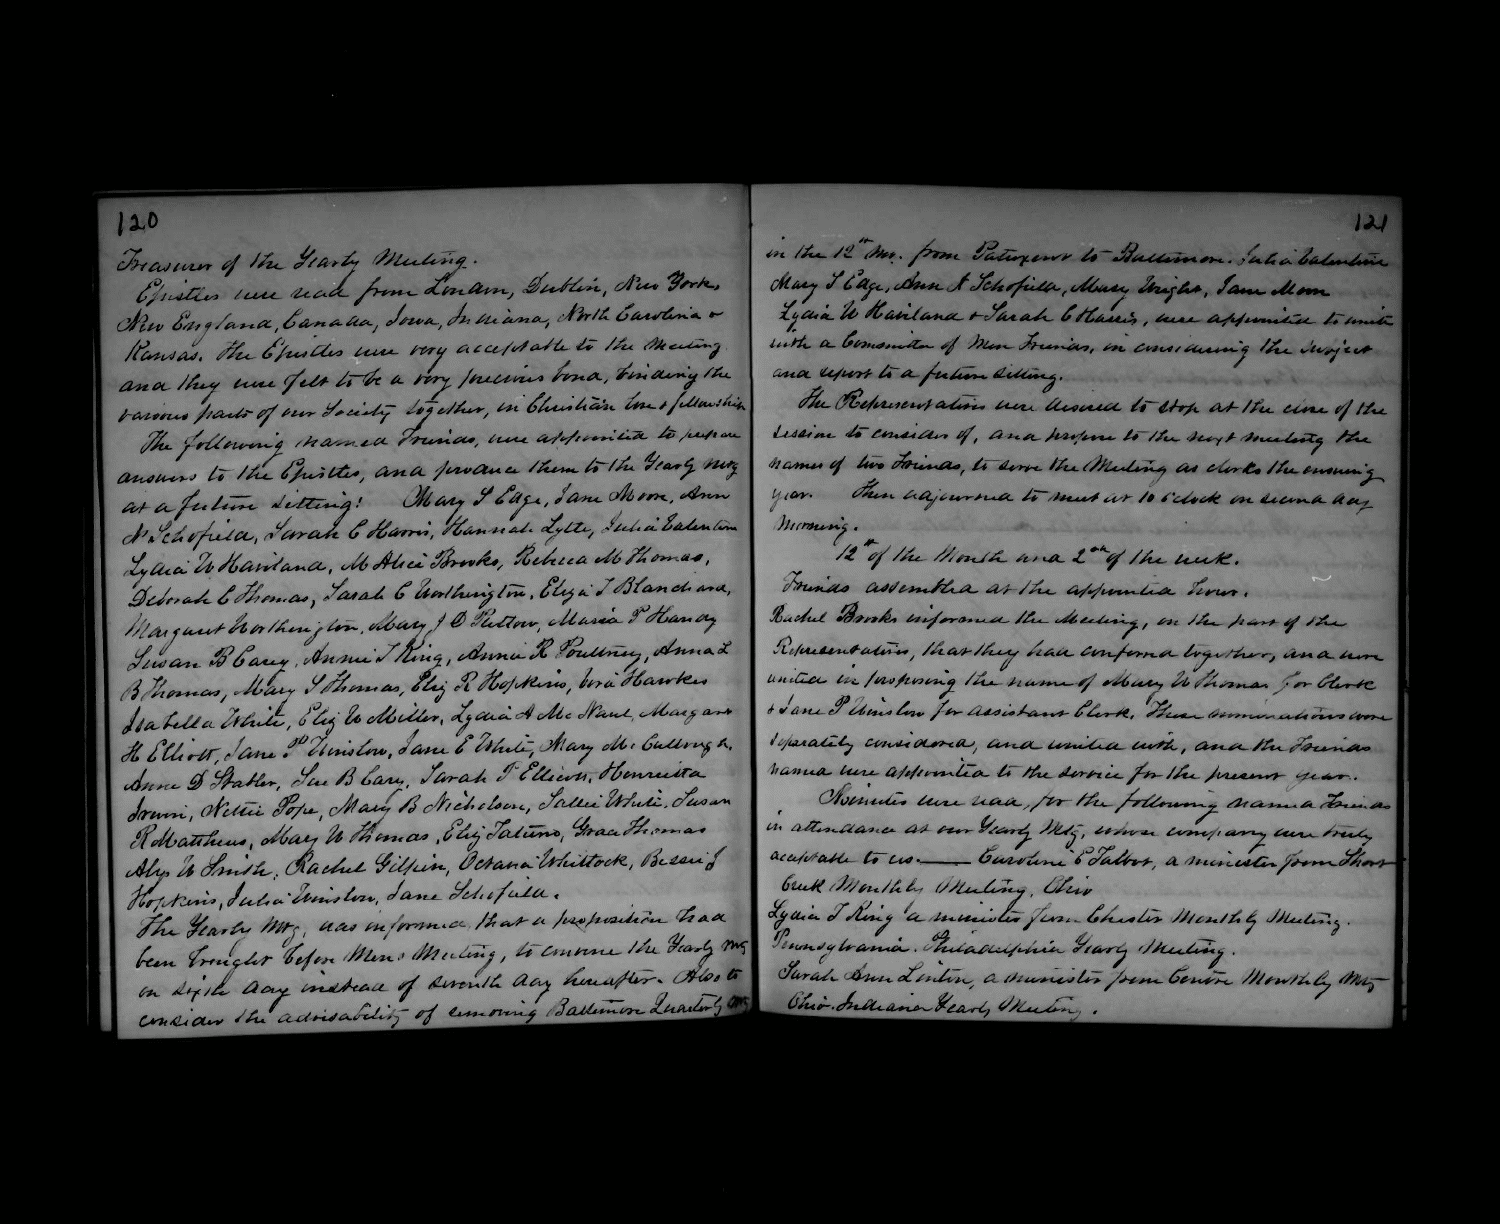 120
Treasurer of the Yearly Meeting.
Epistles were read from London, Dublin, New York,
New England, Canada, Iowa, Indiana, North Carolina &
Kansas. The Epistles were very acceptable to the Meeting
and they were felt to be a very precious bond, binding the
various parts of our Society together, in Christian love & fellowship
The following named Friends, were appointed to prepare
answers to the Epistles, and produce them to the Yearly Mtg
at a future sitting: Mary S Edge, Jane Moore, Ann
N Schofield, Sarah C Harris, Hannah Lytte, Julia Valentine
Lydia W Haviland, M Alice Brooks, Rebecca M Thomas,
Deborah C Thomas, Sarah C Worthington, Eliza T Blanchard,
Margaret Worthington, Mary J D Pattow, Maria P Handy
Susan B Carey, Annie T King, Annie R Poultney, Anna L
B Thomas, Mary S Thomas, Eliz R Hopkins, Hawkes
Isabella White, Eliz W Miller, Lydia A Mc Naul, Margaret
H Elliott, Jane P Winslow, Jane E White, Mary Mc Cullough,
Anne D Stabler, Sue B Cary, Sarah P Ellicott, Henrietta
Irwin, Nettie Pope, Mary B Nicholson, Sallie White, Susan
R Matthews, Mary W Thomas, Eliz Tatum, Grace Thomas
Alys W Smith, Rachel Gilpin, Octavia Whitlock, Bessie J
Hopkins, Julia Winslow, Jane Schofield.
The Yearly Mtg, was informed that a proposition had
been brought before Mens Meeting, to convene the Yearly Mtg
on sixth day instead of seventh day hereafter. Also to
consider the advisability of removing Baltimore Quarterly Mtg
121
in the 12th Mo. from Patuxent to Baltimore. Julia Valentine
Mary S Edge, Ann N Schofield, Mary Wright, Jane Moon
Lydia W Haviland & Sarah C Harris, were appointed to unite
with a Committee of Men Friends, in considering the subject
and report to a future sitting.
The Representatives were desired to stop at the close of the
session to consider of, and propose to the next meeting the
names of two Friends, to serve the Meeting as clerks the ensuing
year. Then adjourned to meet at 10 o'clock on second day
morning.
12th of the Month and 2nd of the week.
Friends assembled at the appointed hour.
Rachel Brooks informed the Meeting, on the part of the
Representatives, that they had conferred together, and were
united in proposing the name of Mary W Thomas for Clerk
& Jane P Winslow for assistant Clerk. These nominations were
separately considered, and united with, and the Friends
named were appointed to the service for the present year.
Minutes were read, for the following named Friends
in attendance at our Yearly Mtg, whose company were truly
acceptable to us.— Caroline E Talbot, a minister from Short
Creek Monthly Meeting, Ohio
Lydia T King a minister from Chester Monthly Meeting.
Pennsylvania. Philadelphia Yearly Meeting.
Sarah Ann Linton, a minister from Centre Monthly Mtg
Ohio. Indiana Yearly Meeting.